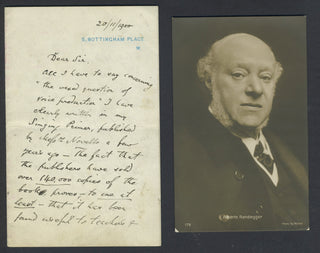 20/11/1900
5, NOTTINGHAM PLACE
W.
Dear Sir.
All I have to say concerning
"the vexed question of
voice production" I have
clearly written in my
Singing Primer, published
by Messrs Novello a few
years ago – The fact that
the publishers have sold
over 140,000 copies of the
book, proves – to me at
least – that it has been
found useful to teachers &
Alberto Randegger